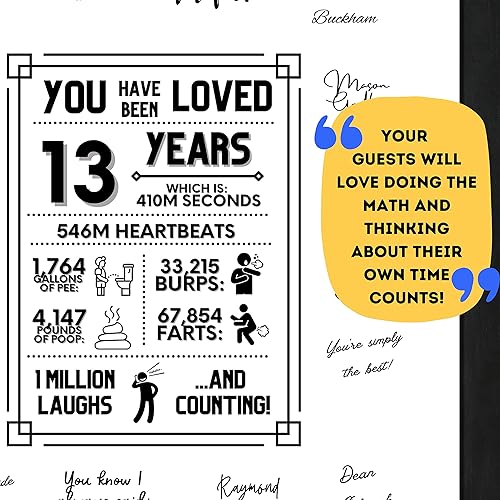 Buckham
Mason
YOU HAVE BEEN LOVED
13 YEARS
WHICH IS:
410M SECONDS
546M HEARTBEATS
1,764
GALLONS
OF PEE:
33,215
BURPS:
4,147
POUNDS
OF POOP:
67,854
FARTS:
1 MILLION
LAUGHS
...AND
COUNTING!
“
YOUR
GUESTS WILL
LOVE DOING THE
MATH AND
THINKING
ABOUT THEIR
OWN TIME
COUNTS!
”
You're simply
the best!
You know I
Raymond
Dean